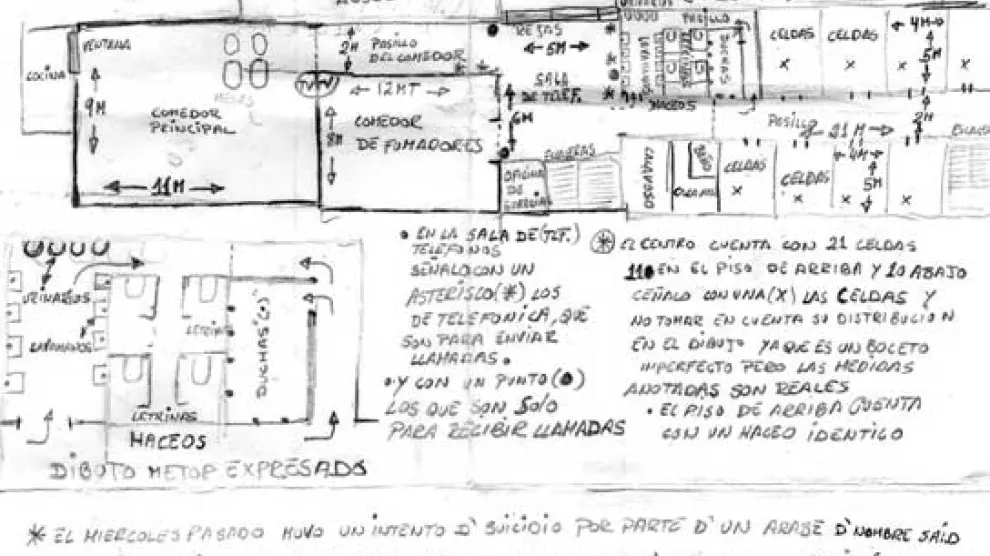 REJAS
PASILLO
VENTANA
COCINA
2M
PASILLO
DEL COMEDOR
5M
SALA
DE TELEF.
6M
LAVAMANOS
DUCHAS
HACEOS
CELDAS
CELDAS
4M
5M
9M
COMEDOR
PRINCIPAL
MESAS
TV
12MT
COMEDOR
DE FUMADORES
8M
11M
PASILLO
21M
2M
ESCALERAS
OFICINA
DE
GUARDIAS
CALABOSO
BAÑO
CELDAS
CELDAS
4M
5M
URINARIOS
LAVAMANOS
LETRINAS
DUCHAS(•)
LETRINAS
HACEOS
DIBUTO METOR EXPRESADO
• EN LA SALA DE (TLF.)
TELEFONOS
SEÑALO CON UN
ASTERISCO(*) LOS
DE TELEFONICA, QUE
SON PARA ENVIAR
LLAMADAS.
• Y CON UN PUNTO (●)
LOS QUE SON SOLO
PARA RECIBIR LLAMADAS
* EL CENTRO CUENTA CON 21 CELDAS
11 EN EL PISO DE ARRIBA Y 10 ABAJO
CEÑALO CON UNA (X) LAS CELDAS Y
NO TOMAR EN CUENTA SU DISTRIBUCION
EN EL DIBUJO YA QUE ES UN BOCETO
IMPERFECTO PERO LAS MEDIDAS
ANOTADAS SON REALES
• EL PISO DE ARRIBA CUENTA
CON UN HACEO IDENTICO
* EL MIERCOLES PASADO HUVO UN INTENTO D' SUICIDIO POR PARTE D' UN ARABE D' NOMBRE SAID